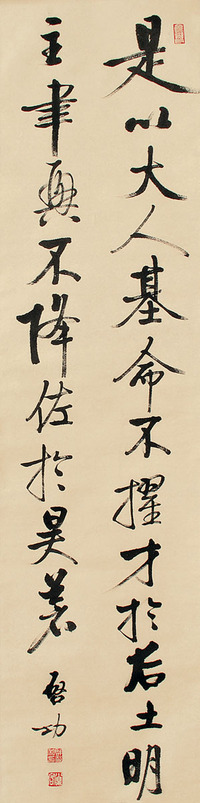 是以大人基命不擢才於后土明
主聿興不降佐於昊蒼
啓功